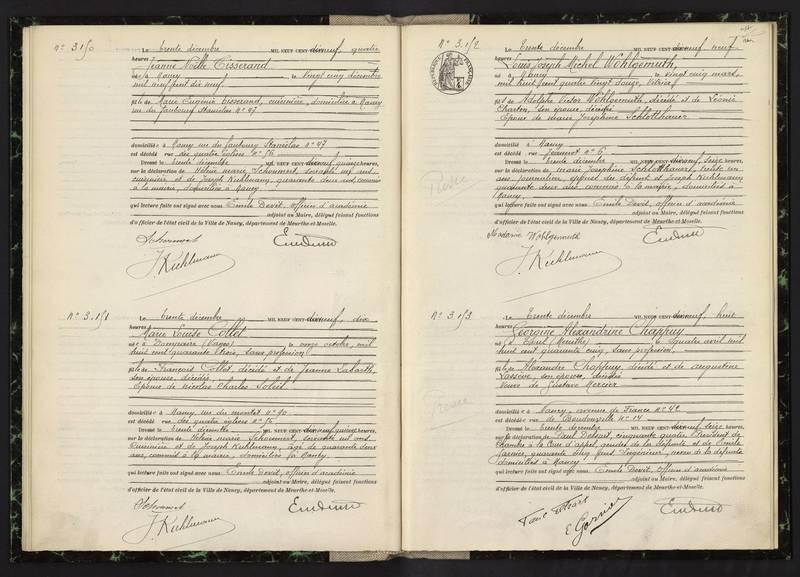 N° 3.150
Le trente décembre MIL NEUF CENT dix neuf, quatre
heures
Jeanne Tisserand,
né à Nancy le vingt cinq décembre
mil neuf cent dix neuf
fils de Marie Eugénie Tisserand, cuisinière, domiciliée à Nancy
rue du faubourg Stanislas n° 47
domicilié à Nancy rue du faubourg Stanislas n° 47
est décédé rue des quatre églises n°
Dressé le trente décembre MIL NEUF CENT dix neuf quinze heures,
sur la déclaration de Marie soixante ans,
cuisinière et de Joseph Kuhlmann, quarante deux ans, commis
à la mairie, domiciliés à Nancy
qui lecture faite ont signé avec nous Emile Devit, officier d'académie
adjoint au Maire, délégué faisant fonctions
d'officier de l'état civil de la Ville de Nancy, département de Meurthe-et-Moselle.
J. Kuhlmann
N° 3.151
Le trente décembre MIL NEUF CENT dix neuf, dix
heures
Marie Louise Collot
né à Dompaire (Vosges) le onze octobre, mil
huit cent quarante trois, sans profession
fils de François Collot, décédé et de Jeanne
son épouse, décédée
Epouse de Nicolas Charles
domicilié à Nancy, rue du montet n° 90
est décédé rue des quatre églises n°
Dressé le trente décembre MIL NEUF CENT dix neuf quinze heures,
sur la déclaration de Marie soixante ans
cuisinière et de Joseph Kuhlmann, âgé de quarante deux
ans, commis à la mairie, domiciliés à Nancy
qui lecture faite ont signé avec nous Emile Devit, officier d'académie
adjoint au Maire, délégué faisant fonctions
d'officier de l'état civil de la Ville de Nancy, département de Meurthe-et-Moselle.
J. Kuhlmann
N° 3.152
Le trente décembre MIL NEUF CENT dix neuf, neuf
heures
Louis Joseph Michel Wohlgemuth,
né à Nancy le vingt cinq mars,
mil huit cent quatre vingt douze, vitrier
fils de Adolphe Victor Wohlgemuth, décédé et de Léonie
Charton, son épouse, décédée
Epoux de Marie Joséphine Schlotthauer
domicilié à Nancy
est décédé rue Jeannot n° 6
Dressé le trente décembre MIL NEUF CENT dix neuf, seize heures,
sur la déclaration de Marie Joséphine Schlotthauer, trente un
ans, journalière, épouse du défunt et Joseph Kuhlmann
quarante deux ans commis à la mairie, domiciliés à
Nancy
qui lecture faite ont signé avec nous Emile Devit, officier d'académie
adjoint au Maire, délégué faisant fonctions
d'officier de l'état civil de la Ville de Nancy, département de Meurthe-et-Moselle.
Madame Wohlgemuth
J. Kuhlmann
N° 3.153
Le trente décembre MIL NEUF CENT dix neuf, huit
heures
Georgine Alexandrine Chappuy
né à Toul (Meurthe) le quatre avril mil
huit cent quarante cinq, sans profession,
fils de Alexandre Chappuy, décédé et de Augustine
son épouse, décédée
Veuve de Gustave Mercier
domicilié à Nancy, avenue de France n° 42
est décédé rue de Boudonville n° 14
Dressé le trente décembre MIL NEUF CENT dix neuf, seize heures,
sur la déclaration de Paul cinquante quatre, Président de
Chambre à la Cour d'appel, gendre de la défunte et de Emile
Garnier, quarante cinq ans, Ingénieur, neveu de la défunte
domiciliés à Nancy
qui lecture faite ont signé avec nous Emile Devit, officier d'académie
adjoint au Maire, délégué faisant fonctions
d'officier de l'état civil de la Ville de Nancy, département de Meurthe-et-Moselle.
E. Garnier